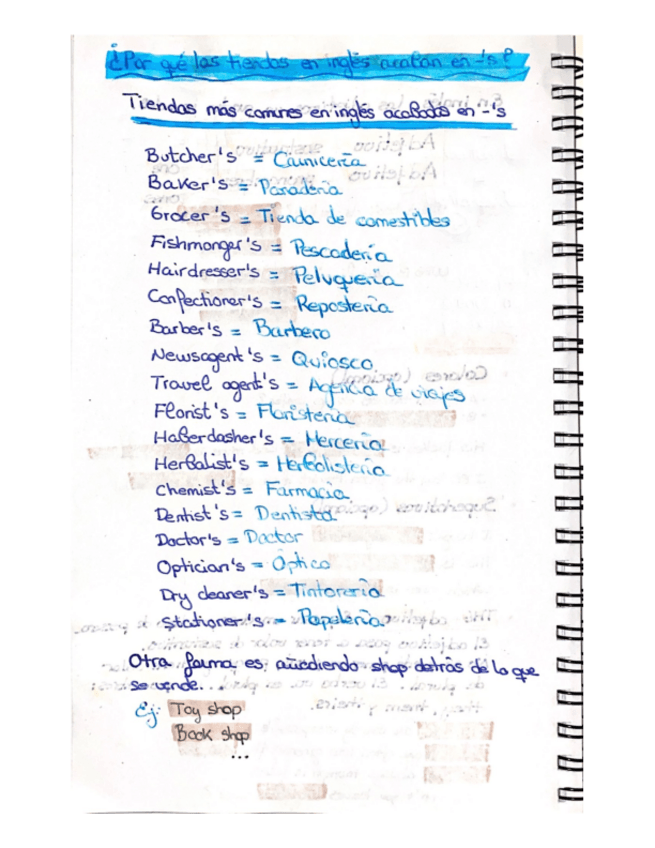 ¿Por qé las tiendas en inglés acaban en -'s?
Tiendas más comunes en inglés acabadas en -'s
Butcher's = Carnicería
Baker's = Panadería
Grocer's = Tienda de comestibles
Fishmonger's = Pescadería
Hairdresser's = Peluquería
Confectioner's = Repostería
Barber's = Barbero
Newsagent's = Quiosco
Travel agent's = Agencia de viajes
Florist's = Floristería
Haberdasher's = Mercería
Herbalist's = Herbolistería
Chemist's = Farmacia
Dentist's = Dentista
Doctor's = Doctor
Optician's = Óptica
Dry cleaner's = Tintorería
Stationer's = Papelería
Otra forma es, añadiendo shop detrás de lo que
se vende..
Ej: Toy shop
Book shop
...